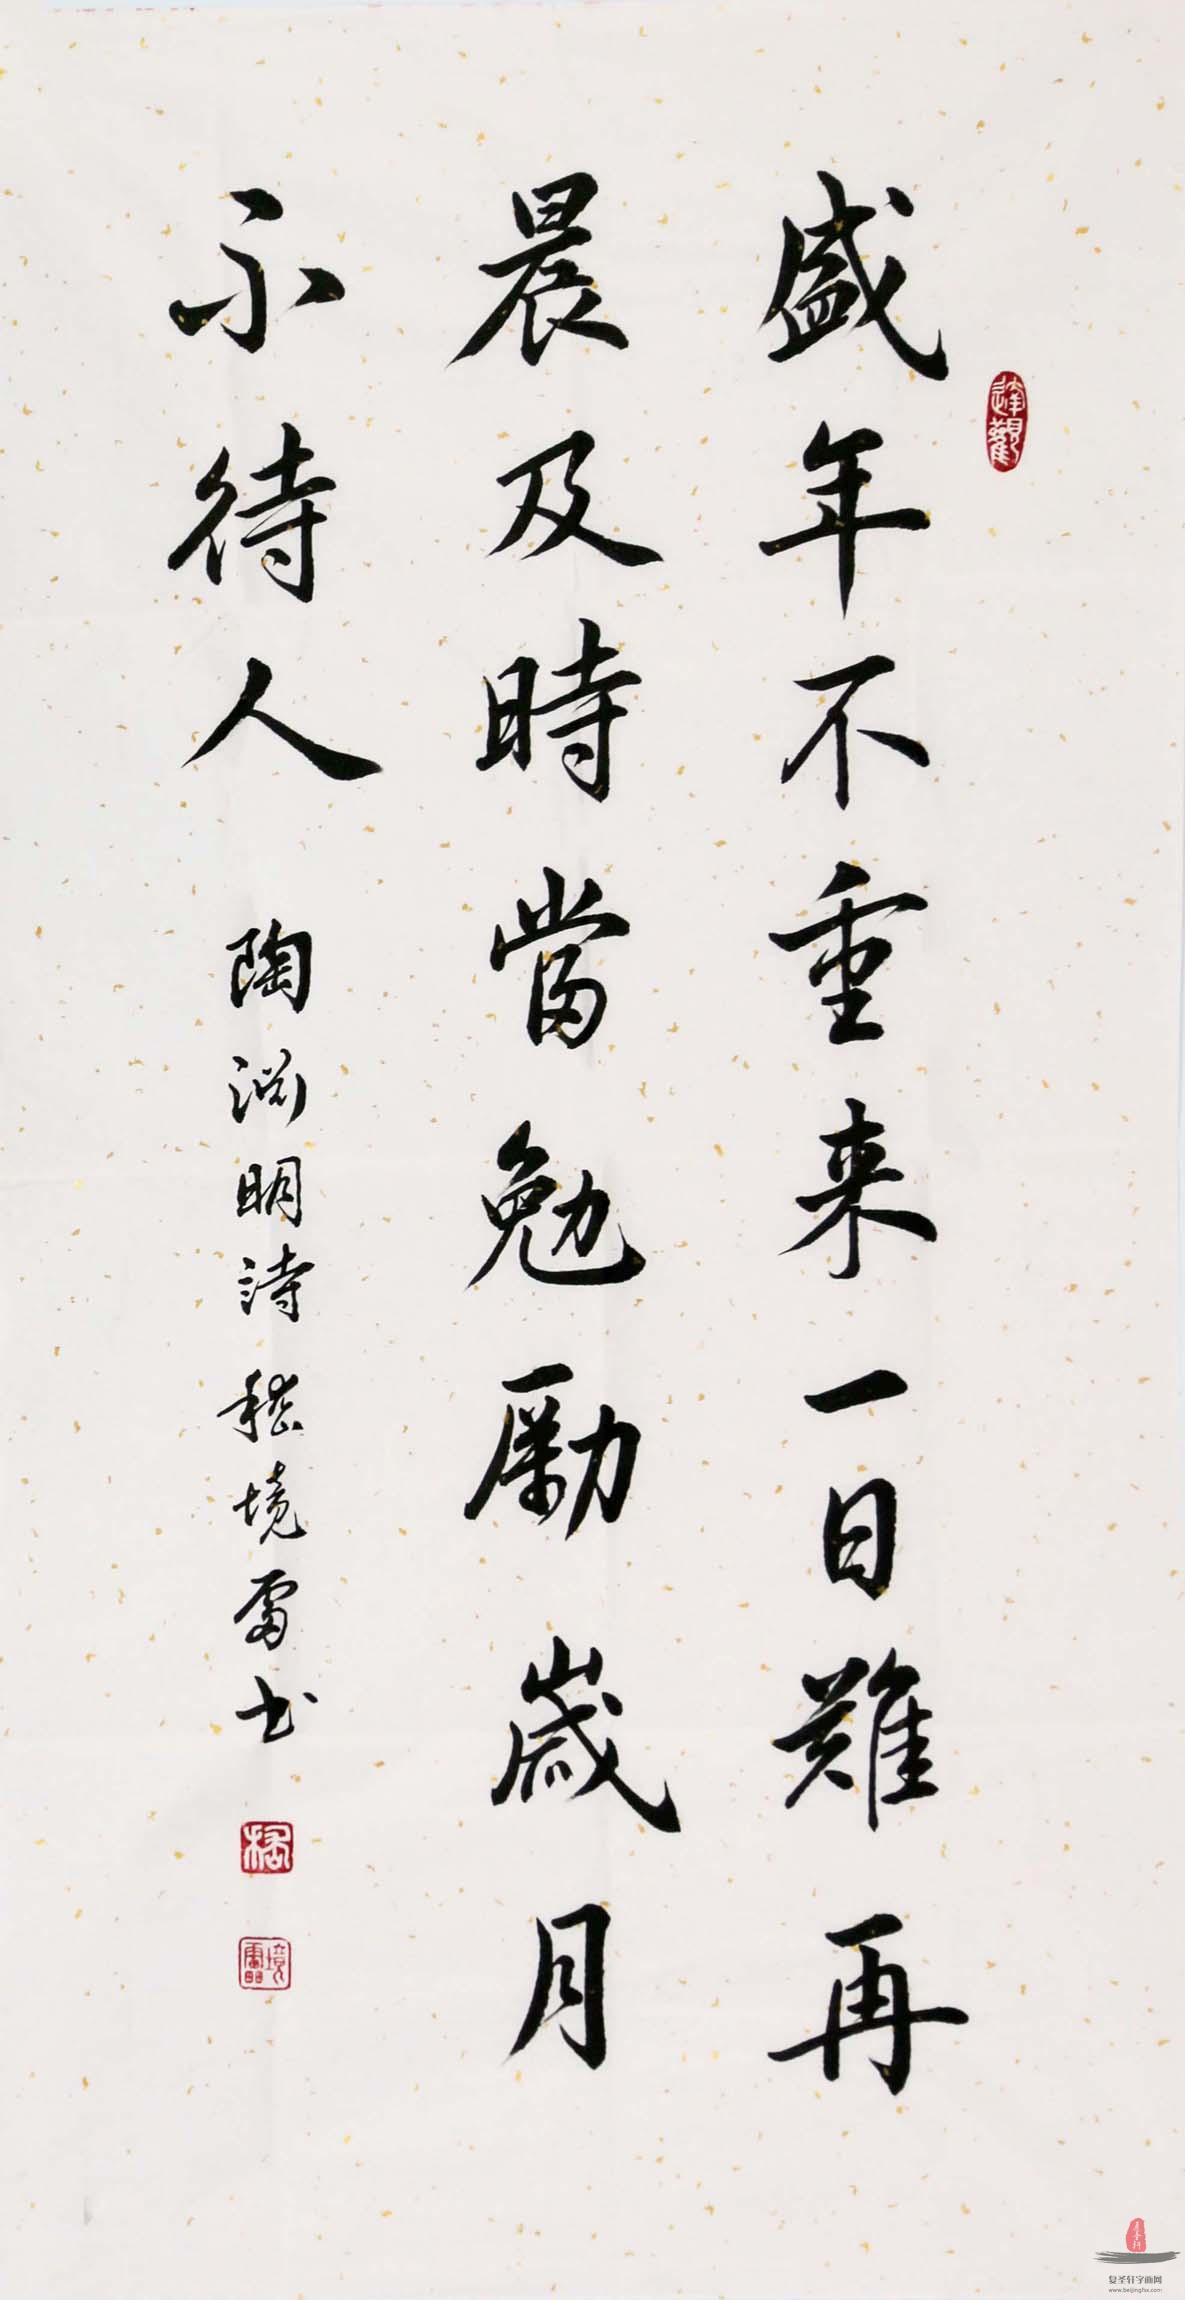 盛年不重来一日難再
晨及時當勉勵歲月
不待人
陶淵明詩嵇境雷书
達觀
嵇
境雷
复圣轩字画网
www.beijingfsx.com